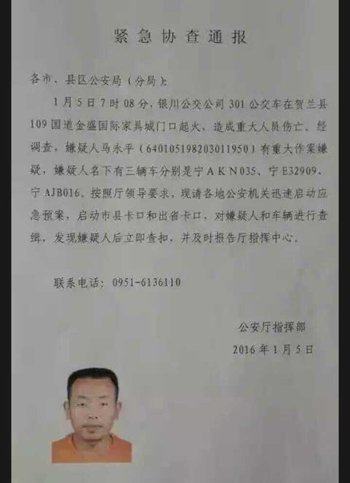 紧急协查通报
各市、县区公安局（分局）：
1月5日7时08分，银川公交公司301公交车在贺兰县
109国道金盛国际家具城门口起火，造成重大人员伤亡。经
调查，嫌疑人马永平（640105198203011950）有重大作案嫌
疑，嫌疑人名下有三辆车分别是宁AKN035、宁E32909、
宁AJB016。按照厅领导要求，现请各地公安机关迅速启动应
急预案，启动市县卡口和出省卡口，对嫌疑人和车辆进行查
缉，发现嫌疑人后立即查扣，并及时报告厅指挥中心。
联系电话：0951-6136110
公安厅指挥部
2016年1月5日